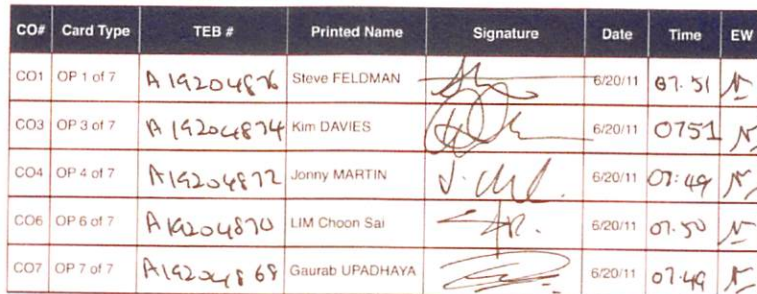 CO# Card Type TEB # Printed Name Signature Date Time EW
CO1 OP 1 of 7 A19204876 Steve FELDMAN 6/20/11 07.51 N
CO3 OP 3 of 7 A19204874 Kim DAVIES 6/20/11 0751 N
CO4 OP 4 of 7 A19204872 Jonny MARTIN 6/20/11 07:49 N
CO6 OP 6 of 7 A19204870 LIM Choon Sai 6/20/11 07.50 N
CO7 OP 7 of 7 A19204869 Gaurab UPADHAYA 6/20/11 07.49 N